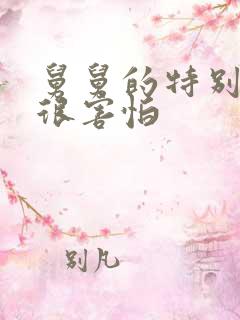 舅舅的特别
很害怕
别凡